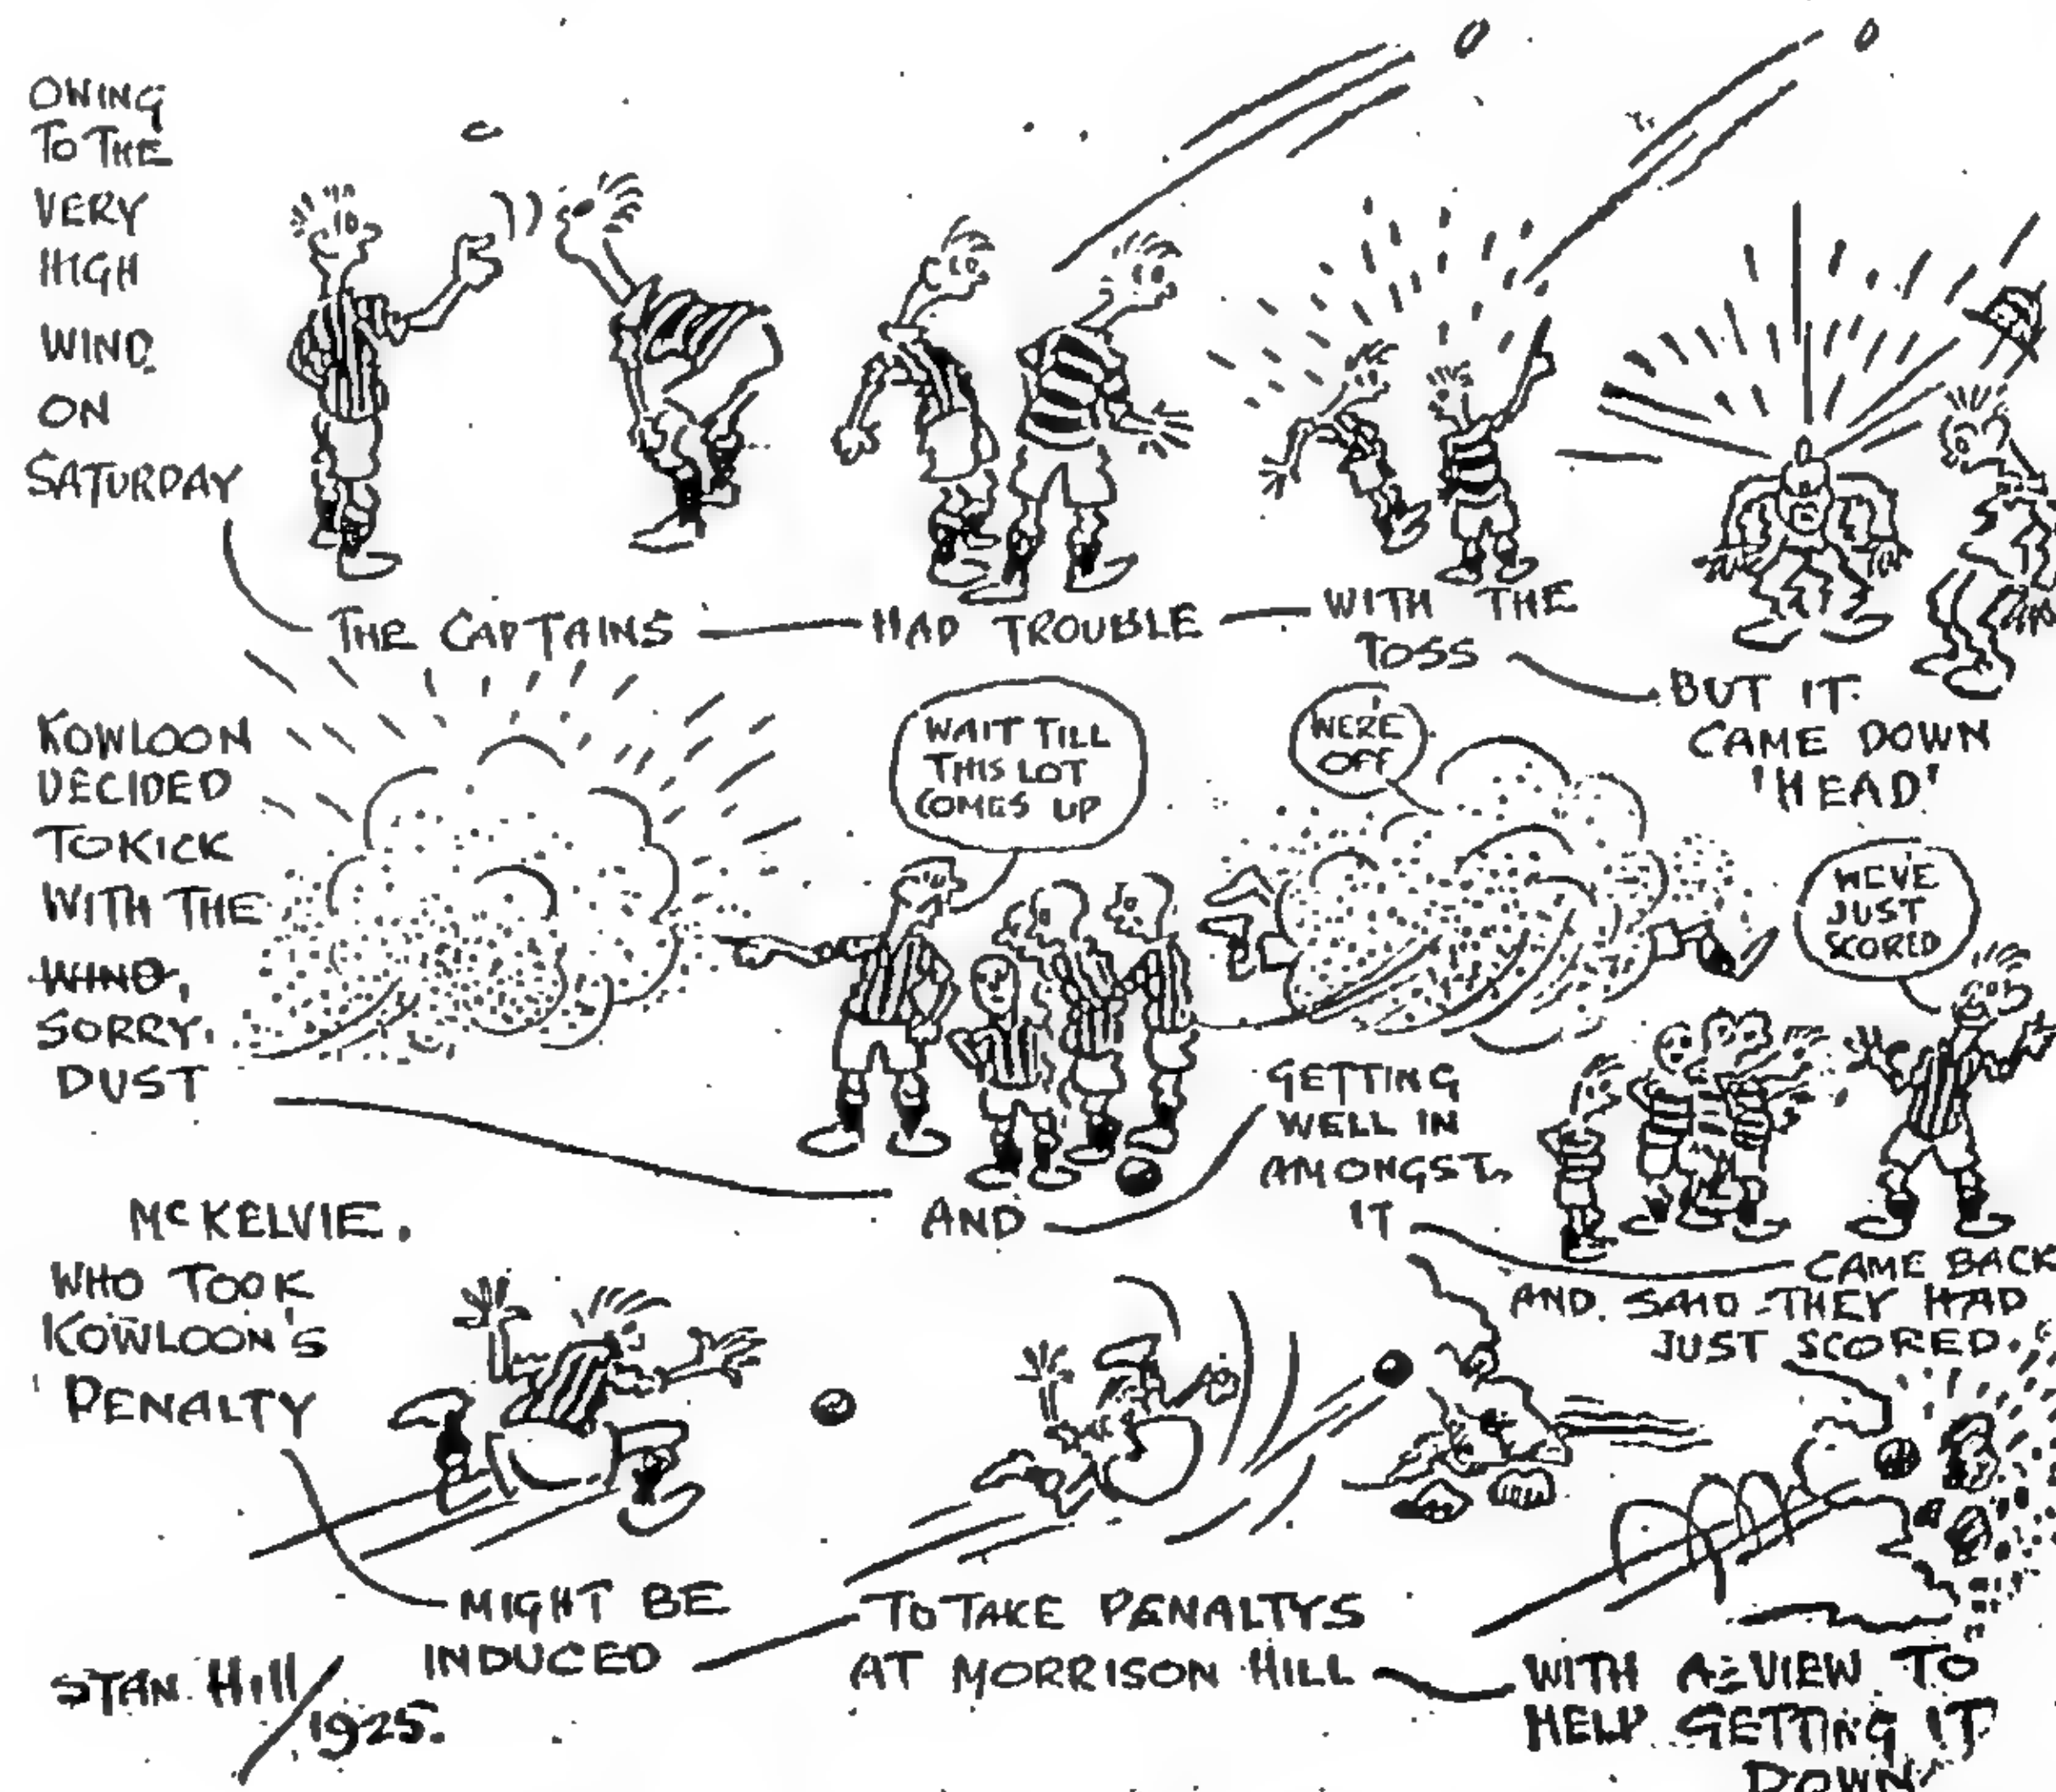 OWING
TO THE
VERY
HIGH
WIND
ON
SATURDAY
THE CAPTAINS
HAD TROUBLE
WITH THE
TOSS
BUT IT
CAME DOWN
'HEAD'
KOWLOON
DECIDED
TO KICK
WITH THE
WIND,
SORRY.
DUST
WAIT TILL
THIS LOT
COMES UP
AND
WERE
OFF
GETTING
WELL IN
AMONGST
IT
WE'VE
JUST
SCORED
CAME BACK
AND SAID THEY HAD
JUST SCORED.
MCKELVIE.
WHO TOOK
KOWLOON'S
PENALTY
MIGHT BE
INDUCED
TO TAKE PENALTYS
AT MORRISON HILL
WITH A VIEW TO
HELP GETTING IT
DOWN
STAN Hill
1925.